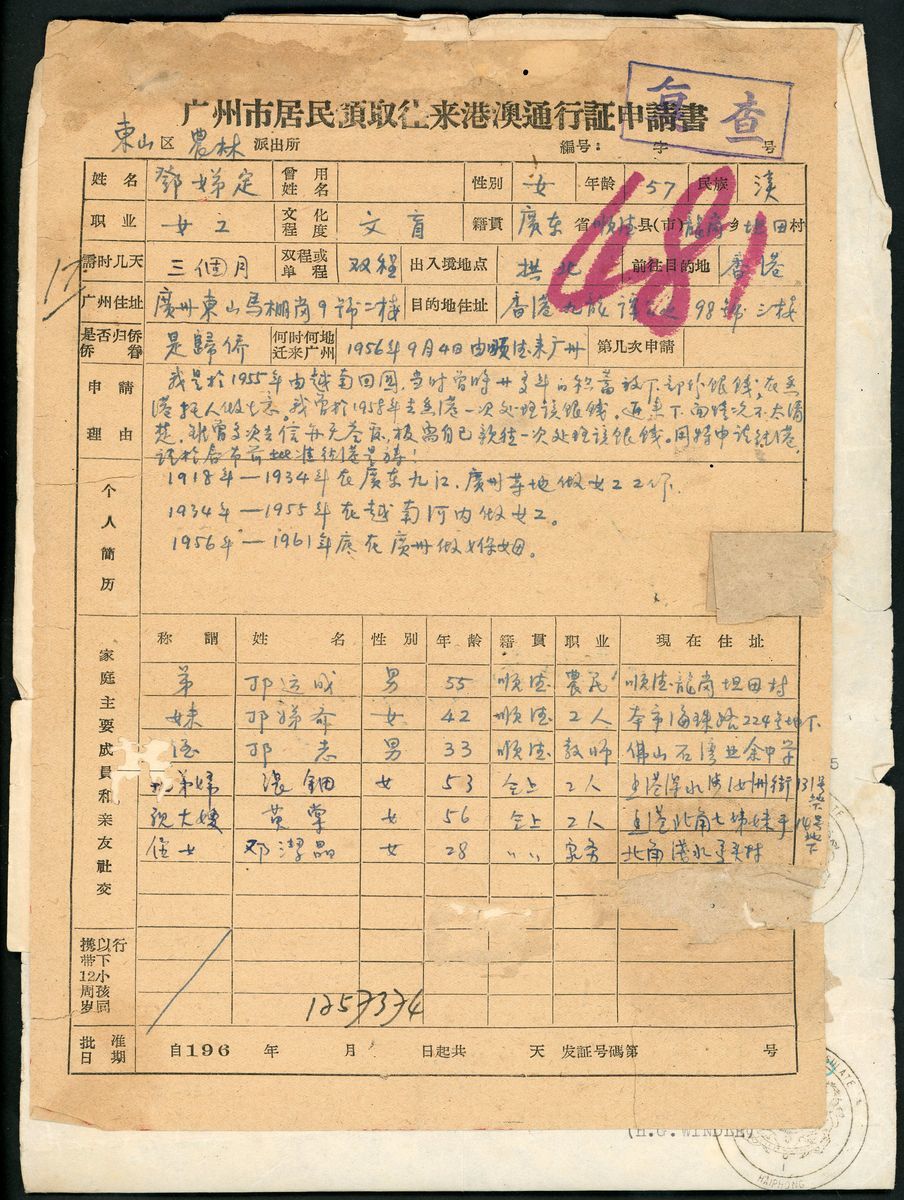 广州市居民領取往来港澳通行証申請書
复查
東山区 農林 派出所 編号： 字 号
姓名 鄧娣定 曾用姓名 性別 女 年龄 57 民族 漢
职业 女工 文化程度 文盲 籍貫 廣东省順德县(市)龍崗乡坦田村
需时几天 三個月 双程或单程 双程 出入境地点 拱北 前往目的地 香港
481
17
广州住址 廣州東山馬棚崗9號二楼 目的地住址 香港九龍 98號三楼
是否归侨侨眷 是歸侨 何时何地迁来广州 1956年9月4日由順德来广州 第几次申請
申請理由 我是於1955年由越南回國,当时曾将廿多年的积蓄放下部份銀錢,在香
港托人做生意。我曾於1958年去香港一次处理該銀錢。近来下面情况不太清
楚,雖曾多次去信并无答商,极需自己親往一次处理該銀錢。同時申請往港
个人简历
1918年—1934年在廣东九江.廣州等地做女工工作
1934年—1955年在越南河内做女工。
1956年—1961年底在廣州做保姆。
家庭主要成員和亲友社交
称謂 姓名 性別 年龄 籍貫 职业 現在住址
弟 邓运成 男 55 順德 農民 順德龍崗坦田村
妹 邓娣 女 42 順德 工人 本市海珠路224号地下
侄 邓志 男 33 順德 教师 佛山石湾
弟婦 張鈿 女 53 仝上 工人 香港深水涉汝州街131号地下
大嫂 黄 女 56 仝上 工人 香港北角七姊妹 14号地下
侄女 邓潔晶 女 28 〃 〃 家务 北角
携带12周岁以下小孩同行
1257374
批准日期 自196 年 月 日起共 天 发証号碼第 号
(H.G.WINDLE)
HAIPHONG